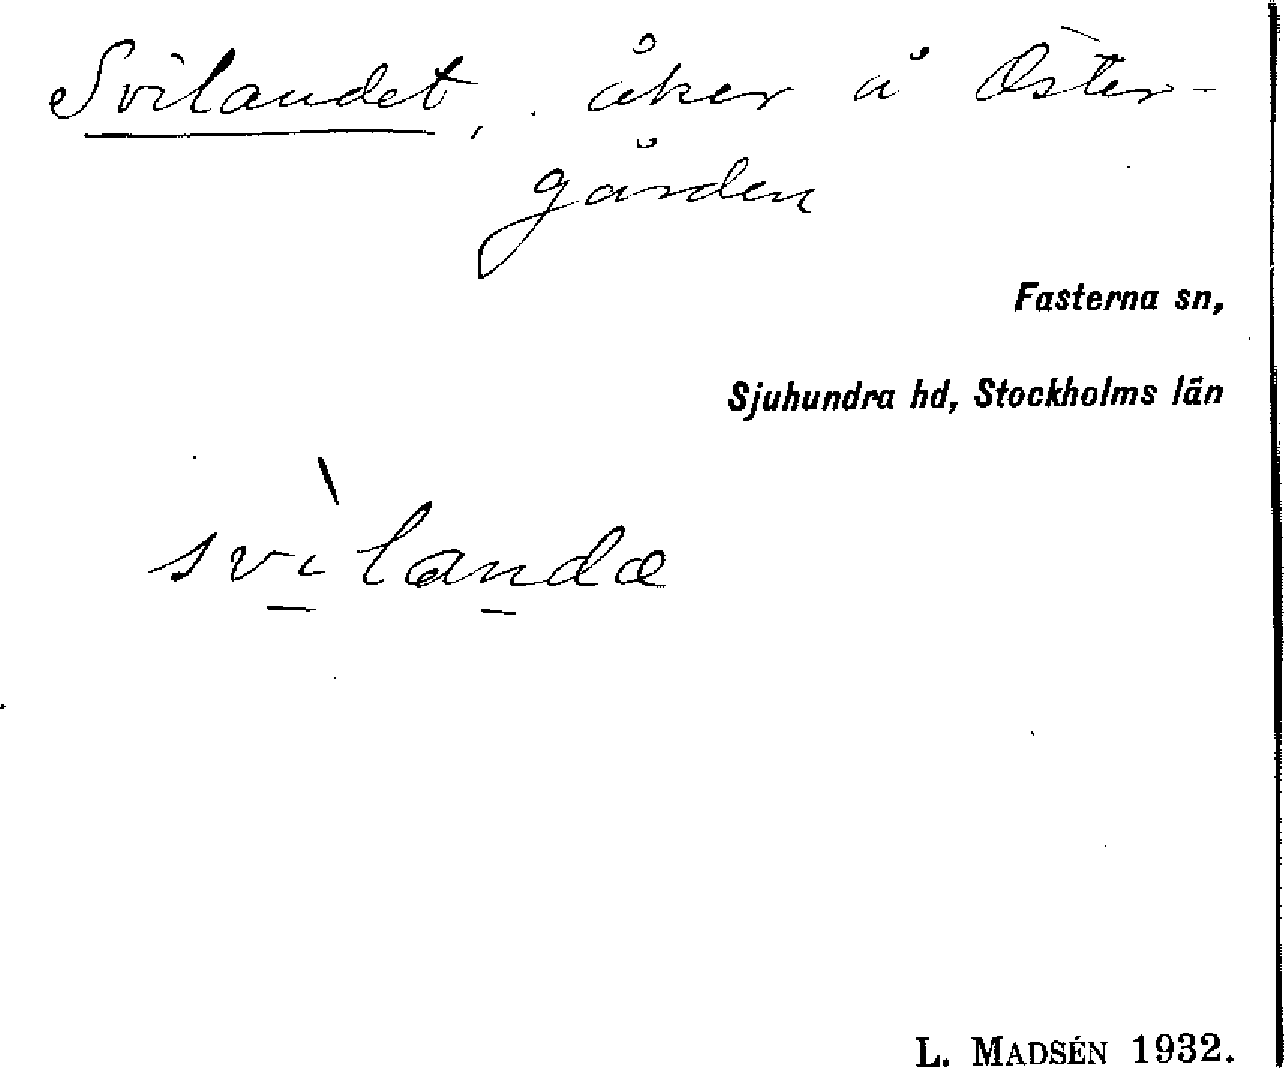 Svilandet, åker å Öster-
gården
Fasterna sn,
Sjuhundra hd, Stockholms län
svìlandæ
L. MADSÉN 1932.